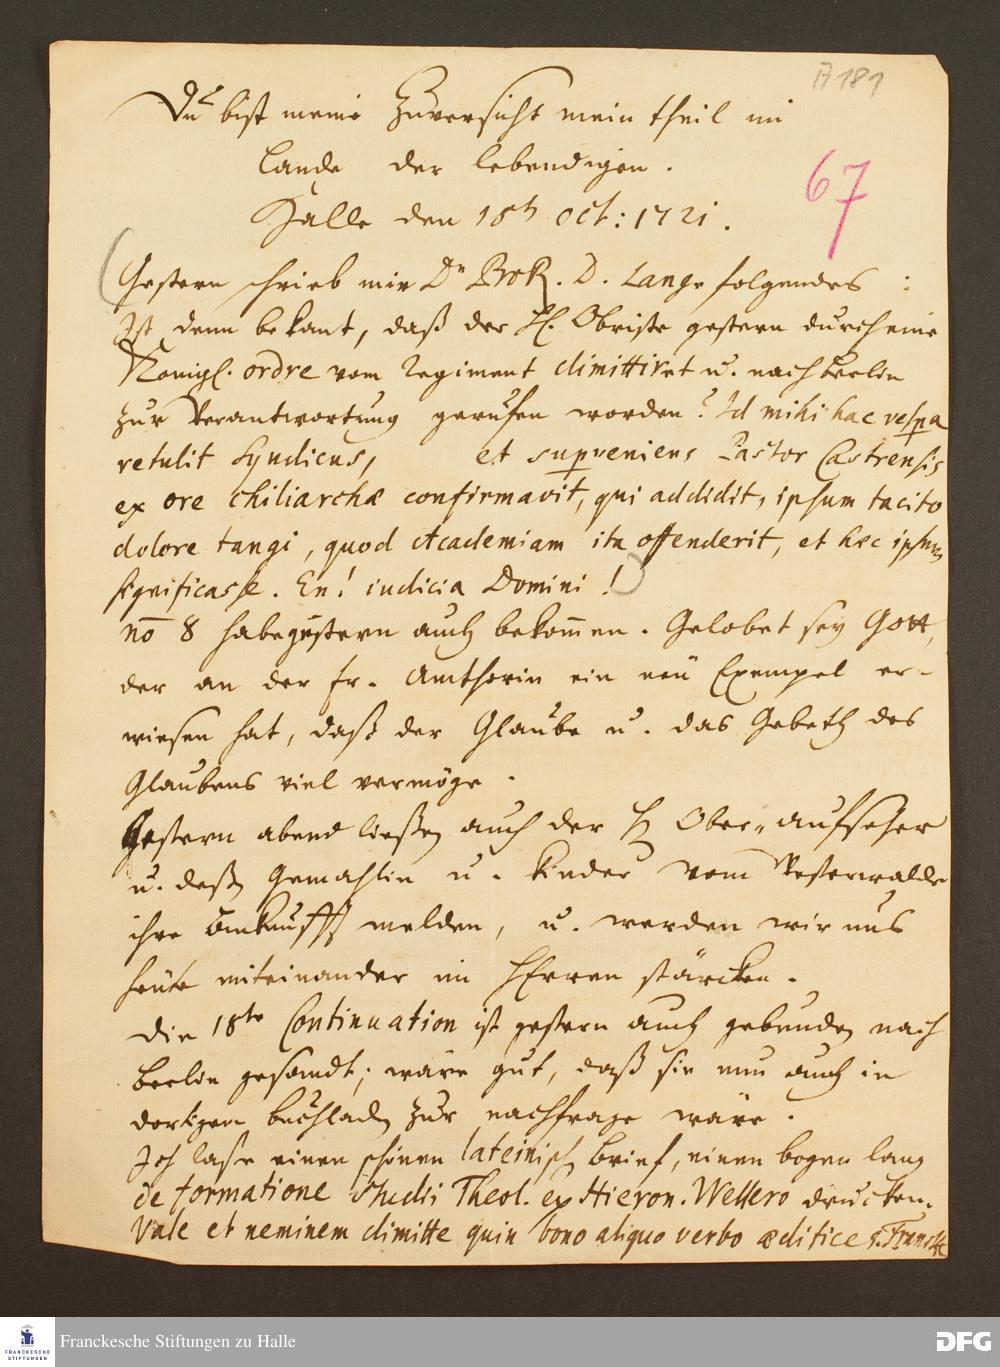 A 181
Du bist meine Zuversicht mein theil im
Lande der lebendigen.
67
Halle den 18ten Oct: 1721.
Gestern schrieb mir Dn ProR. D. Lange folgendes :
Ist denn bekant, daß der H. Obriste gestern durch eine
Königl. ordre vom Regiment dimittiret u. nach Berlin
zur Verantwortung geruffen worden? Id mihi hac vespa
retulit Syndicus, et superveniens Pastor Castrensis
ex ore chiliarchæ confirmavit, qui addidit, ipsum tacito
dolore tangi, quod Academiam ita offenderit, et hæc ipsum
significasse. En! iudicia Domini!
no 8 habe gestern auch bekommen. Gelobet sey Gott,
der an der Fr. Amthorin ein neu Exempel er-
wiesen hat, daß der Glaube u. das Gebeth des
Glaubens viel vermöge.
Gestern abend ließen auch der H Ober-aufseher
u. deßen Gemahlin u. Kinder vom Westerwalde
ihre Ankunfft melden, u. werden wir uns
heute miteinander im HErren stärcken.
Die 18te Continuation ist gestern auch gebunden nach
Berlin gesandt; wäre gut, daß sie nun auch in
dortigen buchladen zur nachfrage wäre.
Ich lasse einen schönen lateinisch brief, einen bogen lang
de formatione Studii Theol. ex Hieron. Wellero drucken.
Vale et neminem dimitte quin bono aliquo verbo ædifices. Francke
Franckesche Stiftungen zu Halle
FRANCKESCHE
STIFTUNGEN
DFG